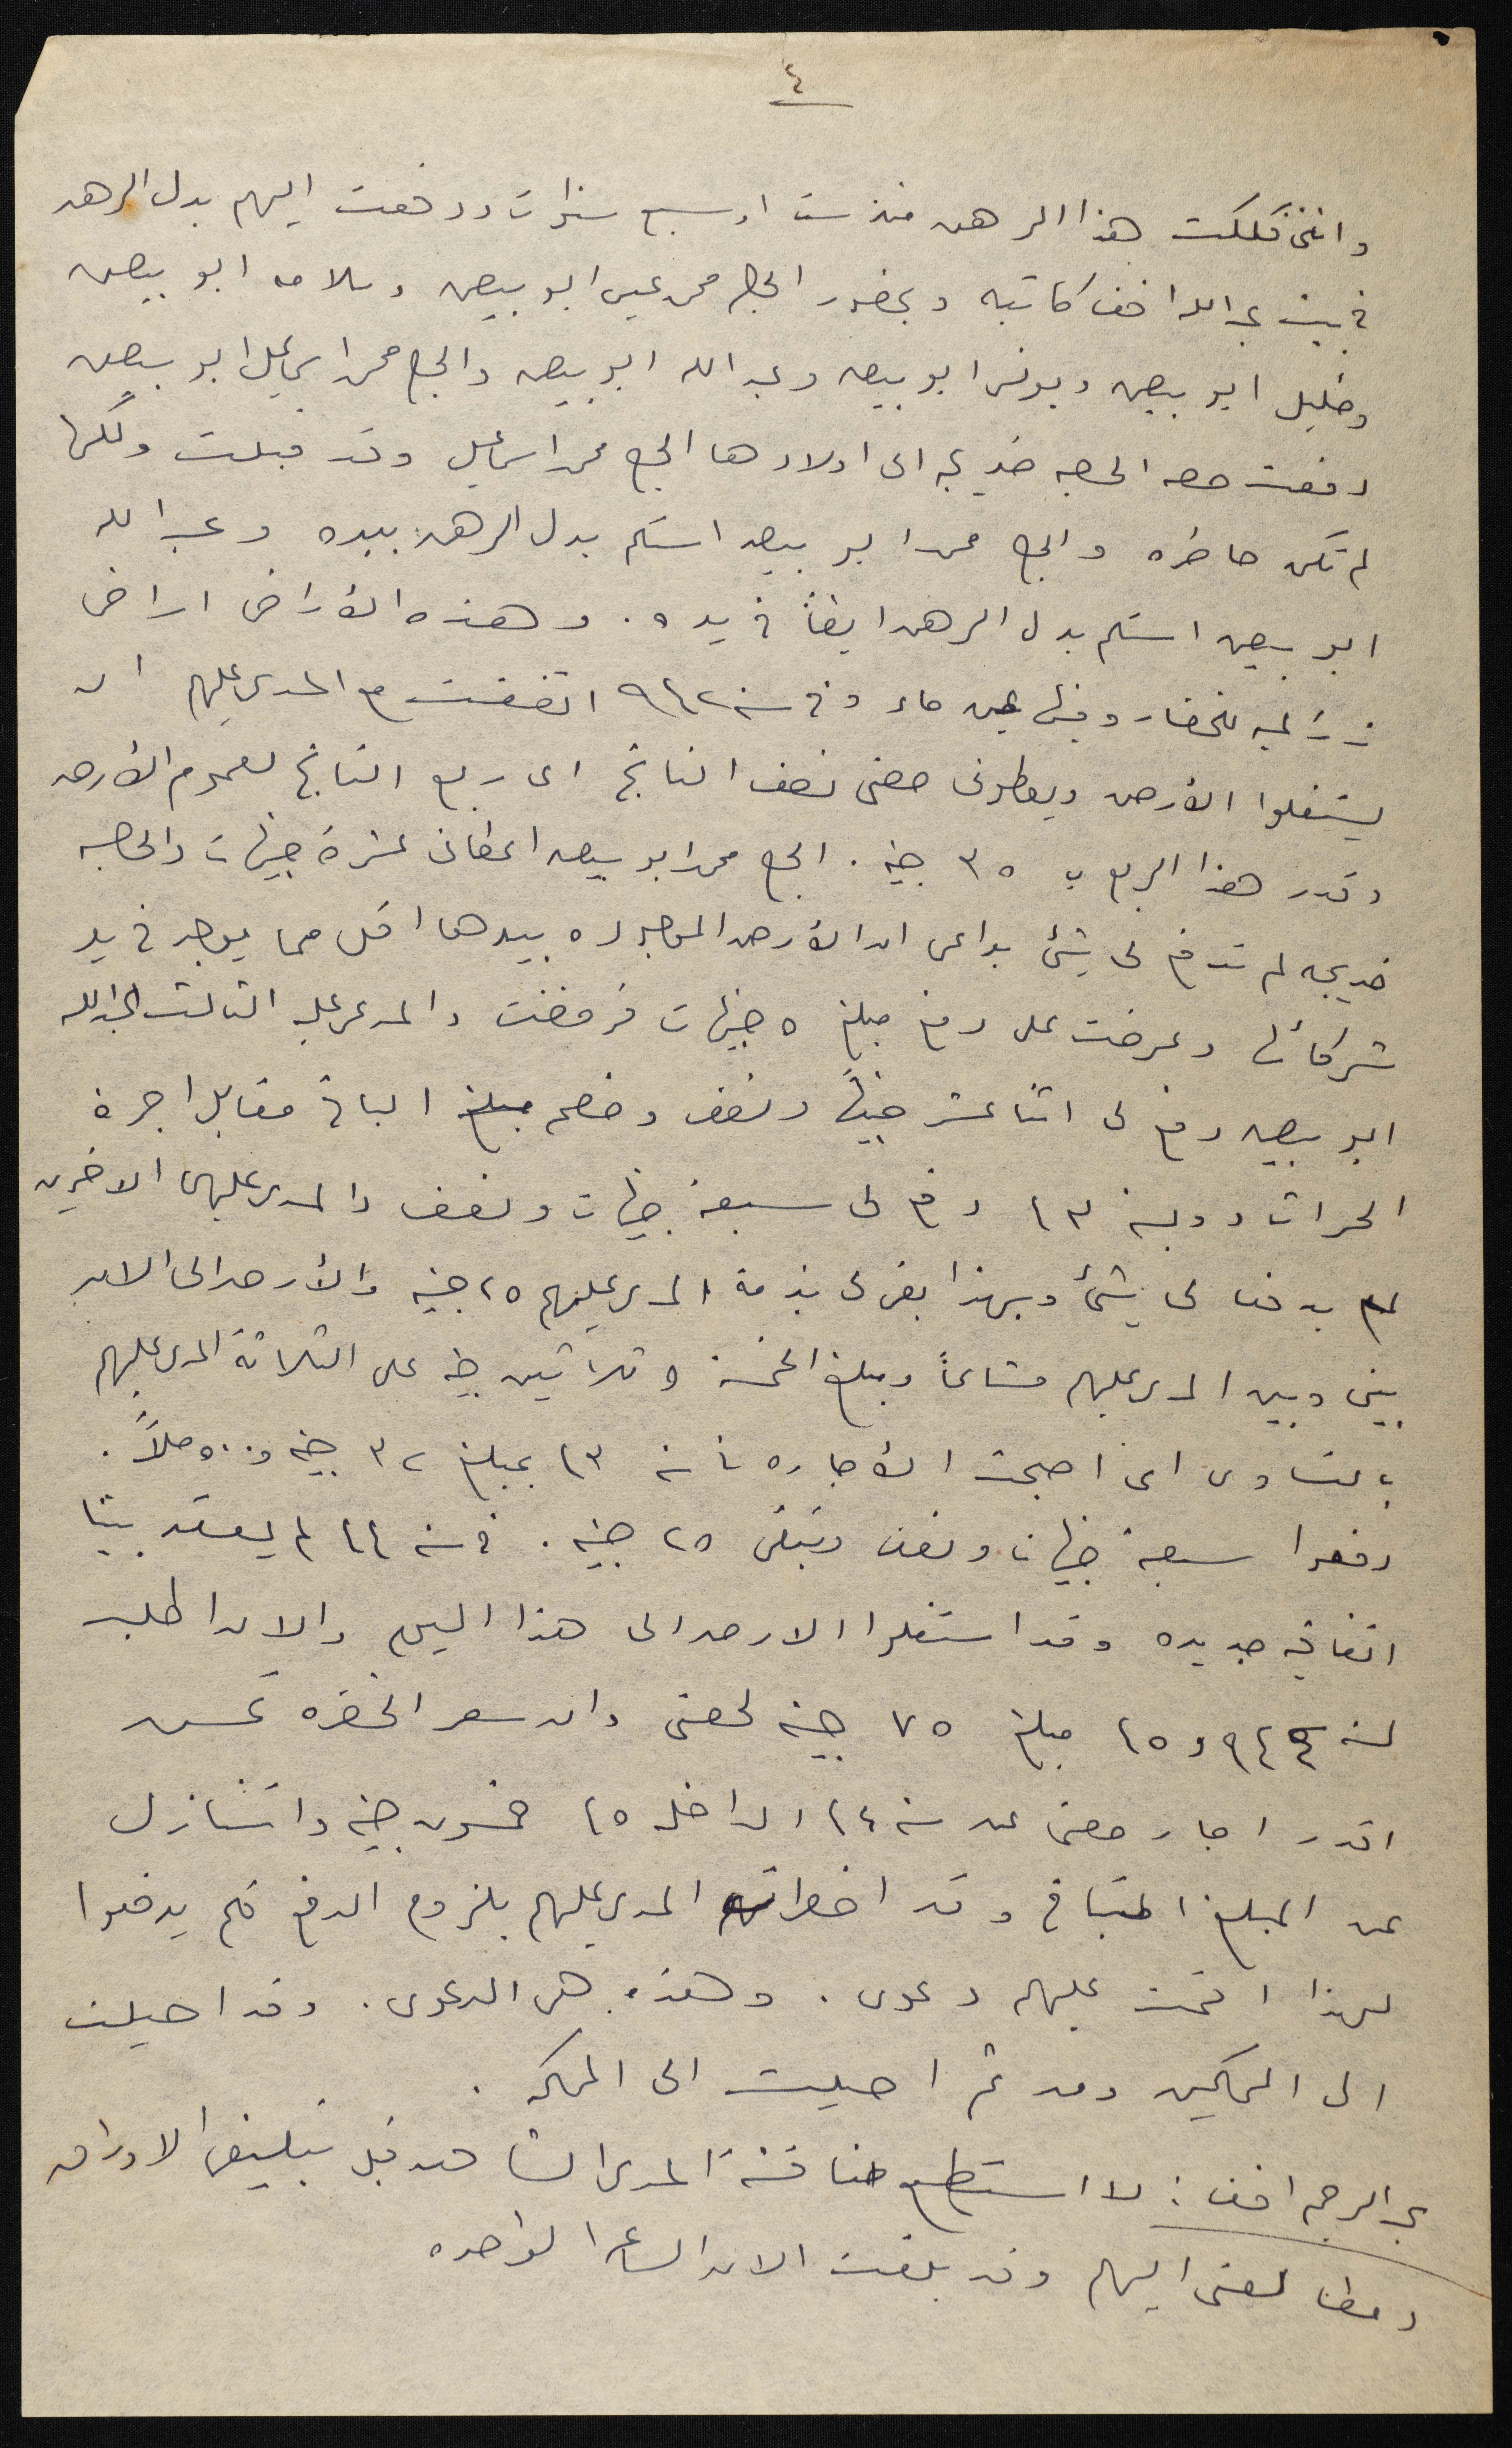 ٤
وافتككت هذا الرهن منذ ست او سبع سنوات ودفعت اليهم بدل الرهن
في بيت عبدالله افندي كاتبه وبحضور الحاج محمد عيسى ابو بيص وسلامه ابو بيص
وخليل ابو بيص ويونس ابو بيص وعبد الله ابو بيص والحاج محمد اسماعيل ابو بيص
دفعت حصه الحاجه خديجه الى اولادها الحاج محمد اسماعيل وقد قبلت ولكنها
لم تكن حاضره والحاج محمد ابو بيص استلم بدل الرهن بيده وعبد الله
ابو بيص استلم بدل الرهن ايضاً في يده . وهذه الأراضي اراضي
زراعيه للخضار وفيها عين ماء وفي سنه ٩٤٢ اتفقت مع المدعى عليهم ان
يشتغلوا الأرض ويعطوني حصتي نصف الناتج اي ربع الناتج لعموم الأرض
وقدر هذا الربع ب ٣٥ جنيه . الحاج محمد ابو بيص اعطاني عشرة جنيهات والحاجه
خديجه لم تدفع لي شيئ بداعي ان الأرض الموجوده بيدها اقل مما يوجد في يد
شركائها وعرضت علي دفع مبلغ ٥ جنيهات فرفضت والمدعى عليه الثالث عبدالله
ابو بيص دفع لي اثنا عشر جنيهاً ونصف وخصم مبلغ الباقي مقابل اجرة
الحراث وبسنة ٤٣ دفع لي سبعة جنيهات ونصف والمدعى عليهما الاخرين
لم يدفعا لي شيئ وبهذا بقي لي بذمة المدعى عليهم ٢٥ جنيه والأرض الى الان
بيني وبين المدعى عليهم مشاعاً ومبلغ الخمسة وثلاثين جنيه على الثلاثة المدعى عليهم
بالتساوي اي اصبحت الأجاره سنة ٤٣ بمبلغ ٣٢ جنيه و ٥٠٠ ملاً .
دفعوا سبعة جنيهات ونصف وتبقى ٢٥ جنيه . في سنه ٤٤ لم يعقد بيننا
اتفاقيه جديده وقد استغلوا الارض الى هذا اليوم والان اطلب
لسنه ٩٤٤ و ٤٥ مبلغ ٧٥ جنيه لحصتي وان سعر الخضره تحسن
اقدر اجار حصتي عن سنه ٤٤ الداخله ٤٥ خمسون جنيه واتنازل
عن المبلغ المتباقي وقد اخطرت المدعى عليهم بلزوم الدفع فلم يدفعوا
لهذا اقمت عليهم دعوى . وهذه هي الدعوى . وقد احيلت
الى المحكمين ومن ثم احيلت الى المحكمه .
عبد الرحيم افندي : لا استطيع مناقشة المدعي الشاهد قبل تبليغي الاوراق
ومطالعتي اليهم وقد بلغت الان الساعه الواحده